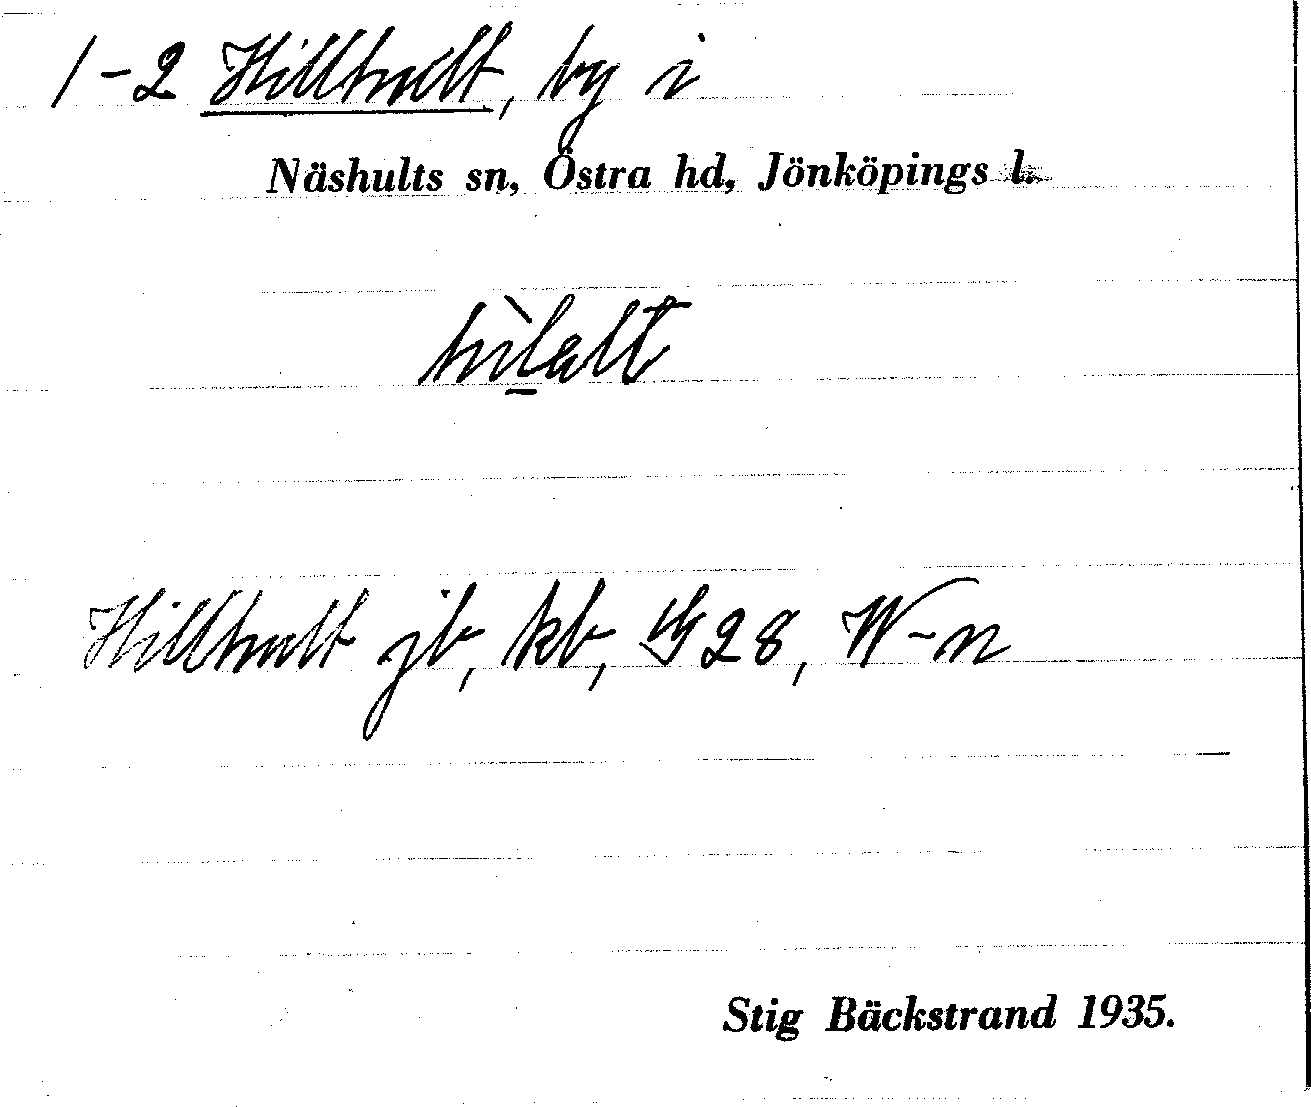 1-2 Hillhult, by i
Näshults sn, Östra hd, Jönköpings l.
hìlalt
Hillhult jb, kb, GS 28, W-n
Stig Bäckstrand 1935.